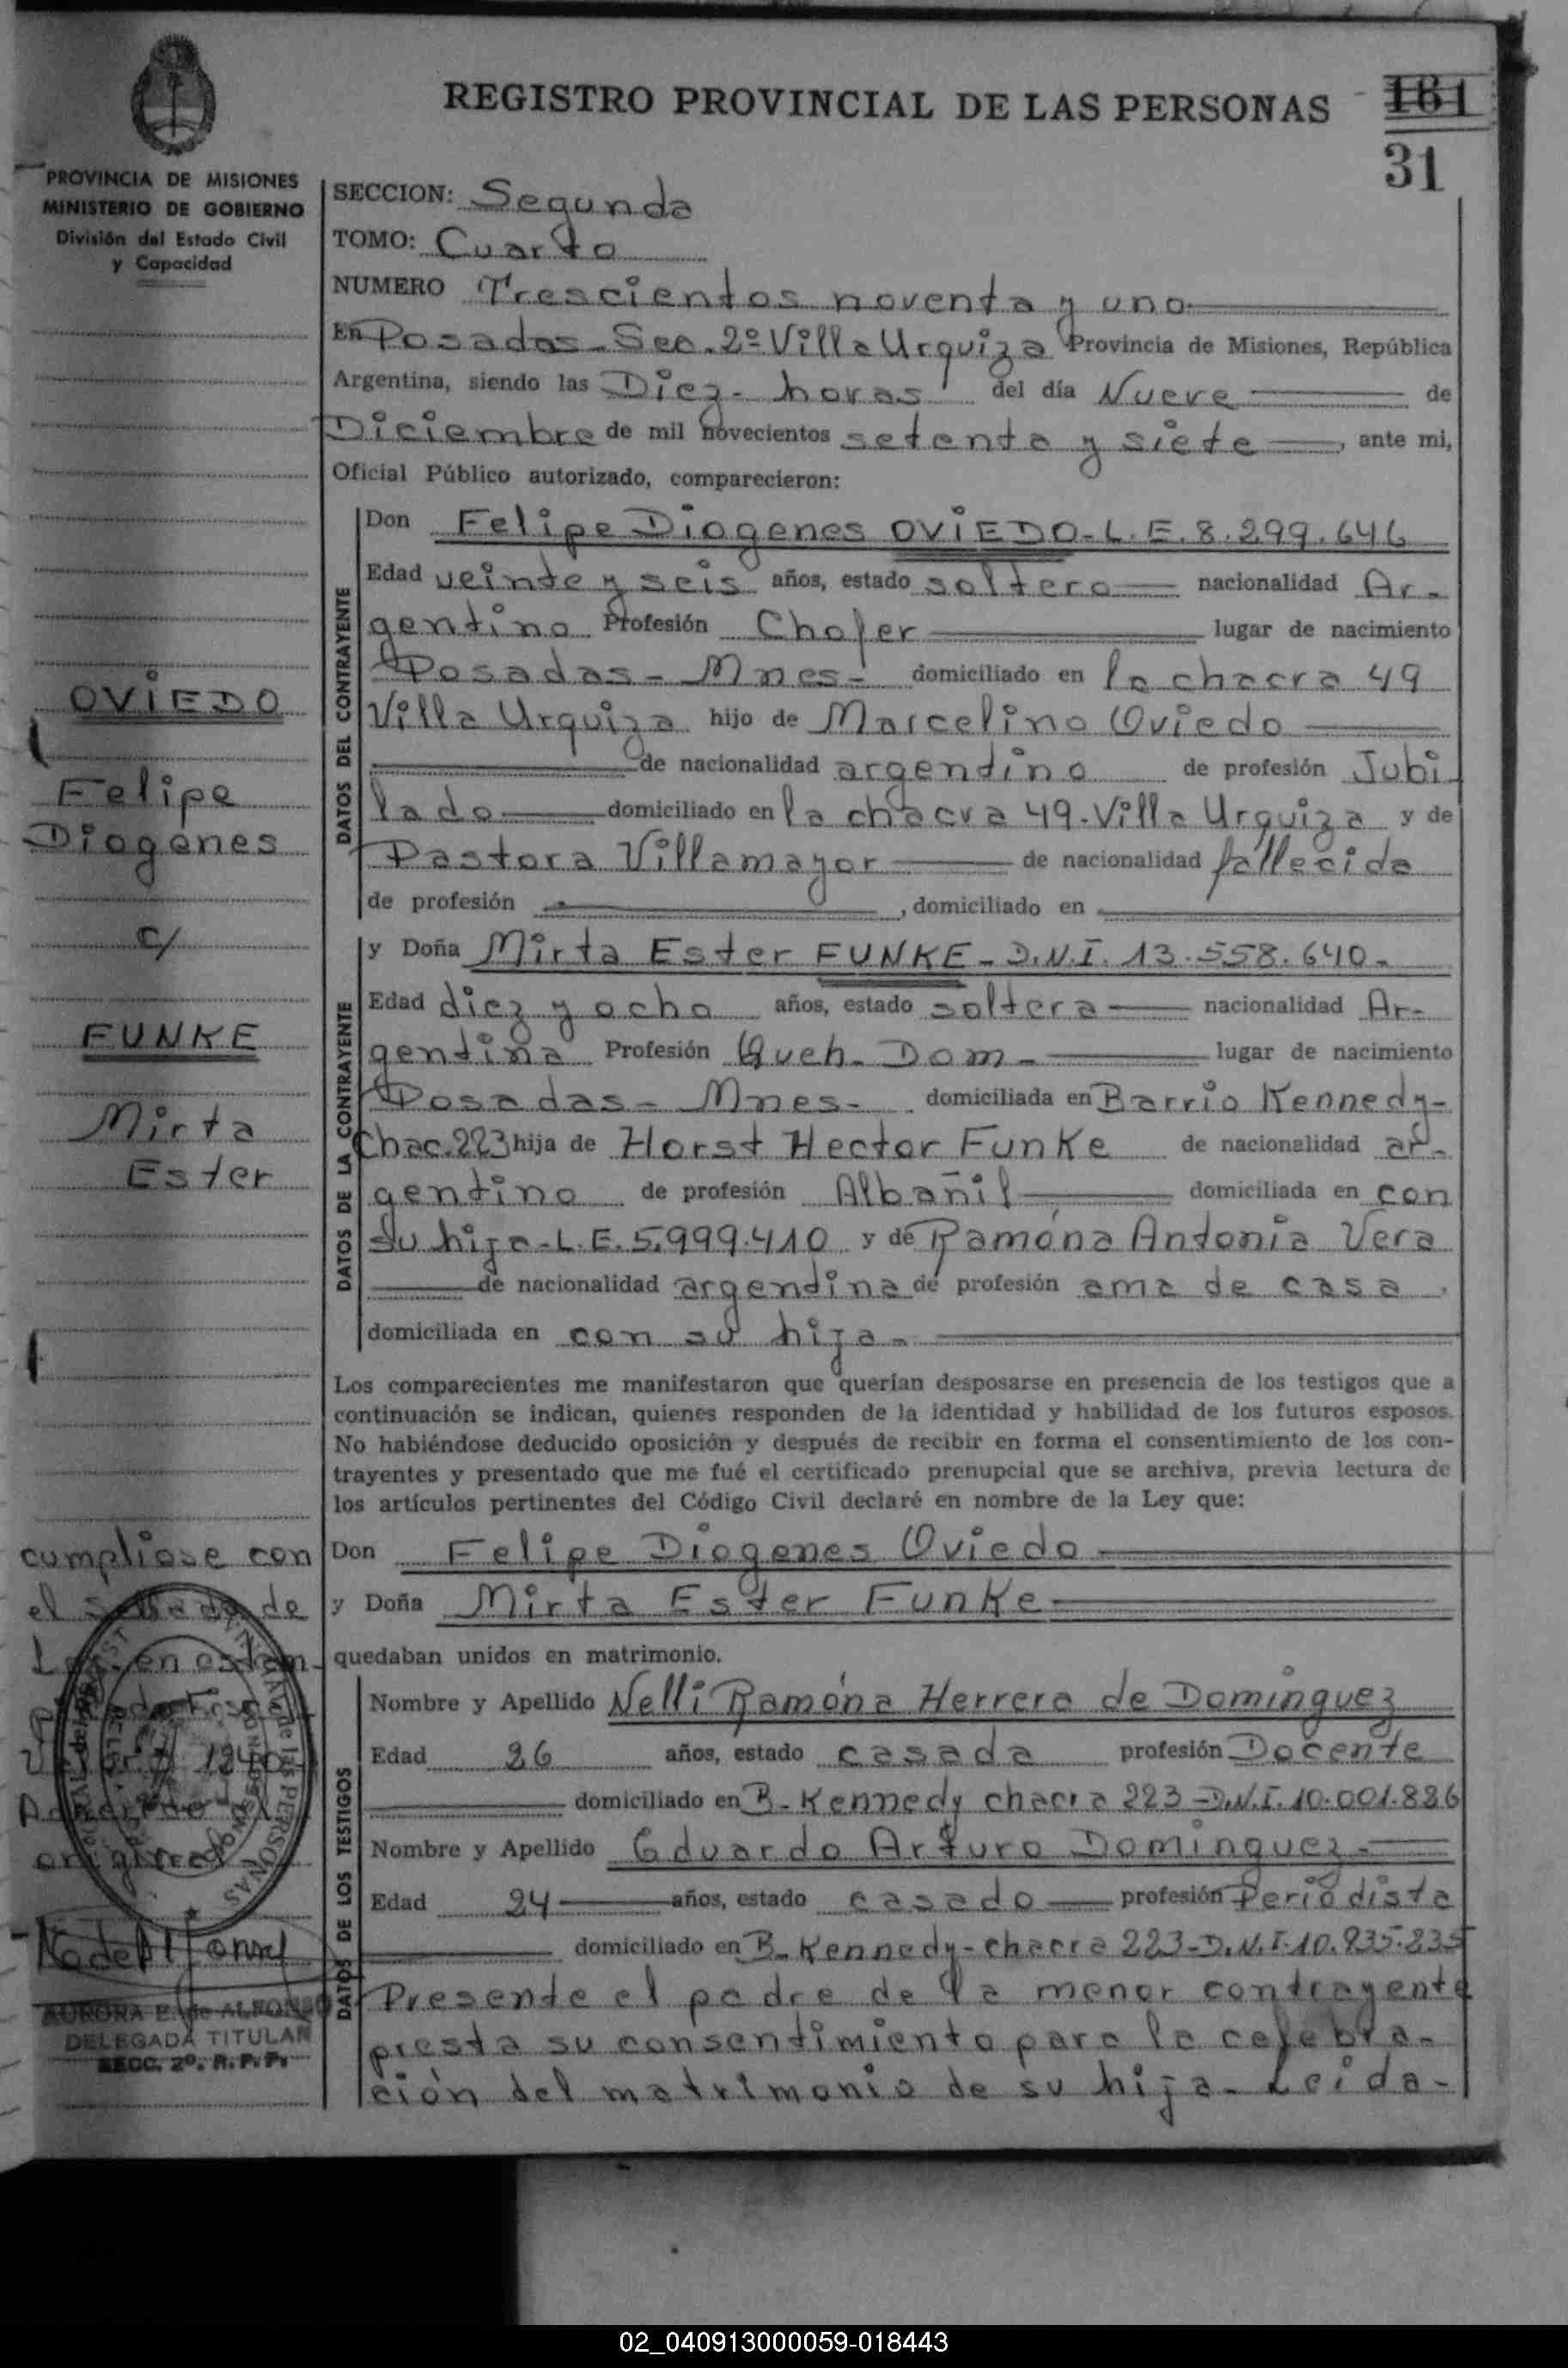 REGISTRO PROVINCIAL DE LAS PERSONAS
161
31
PROVINCIA DE MISIONES
MINISTERIO DE GOBIERNO
División del Estado Civil
y Capacidad
SECCION: Segunda
TOMO: Cuarto
NUMERO Trescientos noventa y uno
En Posadas - Sec. 2º Villa Urquiza Provincia de Misiones, República
Argentina, siendo las Diez - horas del día Nueve de
Diciembre de mil novecientos setenta y siete, ante mi,
Oficial Público autorizado, comparecieron:
DATOS DEL CONTRAYENTE
Don Felipe Diogenes OVIEDO - L.E. 8.299.646
Edad veinte y seis años, estado soltero nacionalidad Ar-
gentino Profesión Chofer lugar de nacimiento
Posadas - Mnes - domiciliado en la chacra 49
Villa Urquiza hijo de Marcelino Oviedo
de nacionalidad argentino de profesión Jubi
lado domiciliado en la chacra 49 - Villa Urquiza y de
Pastora Villamayor de nacionalidad fallecida
de profesión , domiciliado en
DATOS DE LA CONTRAYENTE
y Doña Mirta Ester FUNKE - D.N.I. 13.558.640 -
Edad diez y ocho años, estado soltera nacionalidad Ar-
gentina Profesión Queh - Dom - lugar de nacimiento
Posadas - Mnes - domiciliada en Barrio Kennedy -
Chac. 223 hija de Horst Hector Funke de nacionalidad ar-
gentino de profesión Albañil domiciliada en con
su hija - L.E. 5.999.410 y de Ramóna Antonia Vera
de nacionalidad argentina de profesión ama de casa,
domiciliada en con su hija -
Los comparecientes me manifestaron que querían desposarse en presencia de los testigos que a
continuación se indican, quienes responden de la identidad y habilidad de los futuros esposos.
No habiéndose deducido oposición y después de recibir en forma el consentimiento de los con-
trayentes y presentado que me fué el certificado prenupcial que se archiva, previa lectura de
los artículos pertinentes del Código Civil declaré en nombre de la Ley que:
Don Felipe Diogenes Oviedo
y Doña Mirta Ester Funke
quedaban unidos en matrimonio.
DATOS DE LOS TESTIGOS
Nombre y Apellido Nelli Ramóna Herrera de Dominguez
Edad 26 años, estado casada profesión Docente
domiciliado en B - Kennedy chacra 223 - D.N.I. 10.001.886
Nombre y Apellido Eduardo Arturo Dominguez -
Edad 24 años, estado casado profesión Periodista
domiciliado en B - Kennedy - chacra 223 - D.N.I. 10.935.235
Presente el padre de la menor contrayente
presta su consentimiento para la celebra-
ción del matrimonio de su hija - Leida -
OVIEDO
Felipe
Diogenes
c/
FUNKE
Mirta
Ester
cumpliose con
el Sellado de
Ley en estam-
AURORA E. de ALFONSO
DELEGADA TITULAR
SECC. 2º. R. P. P.
02_040913000059-018443